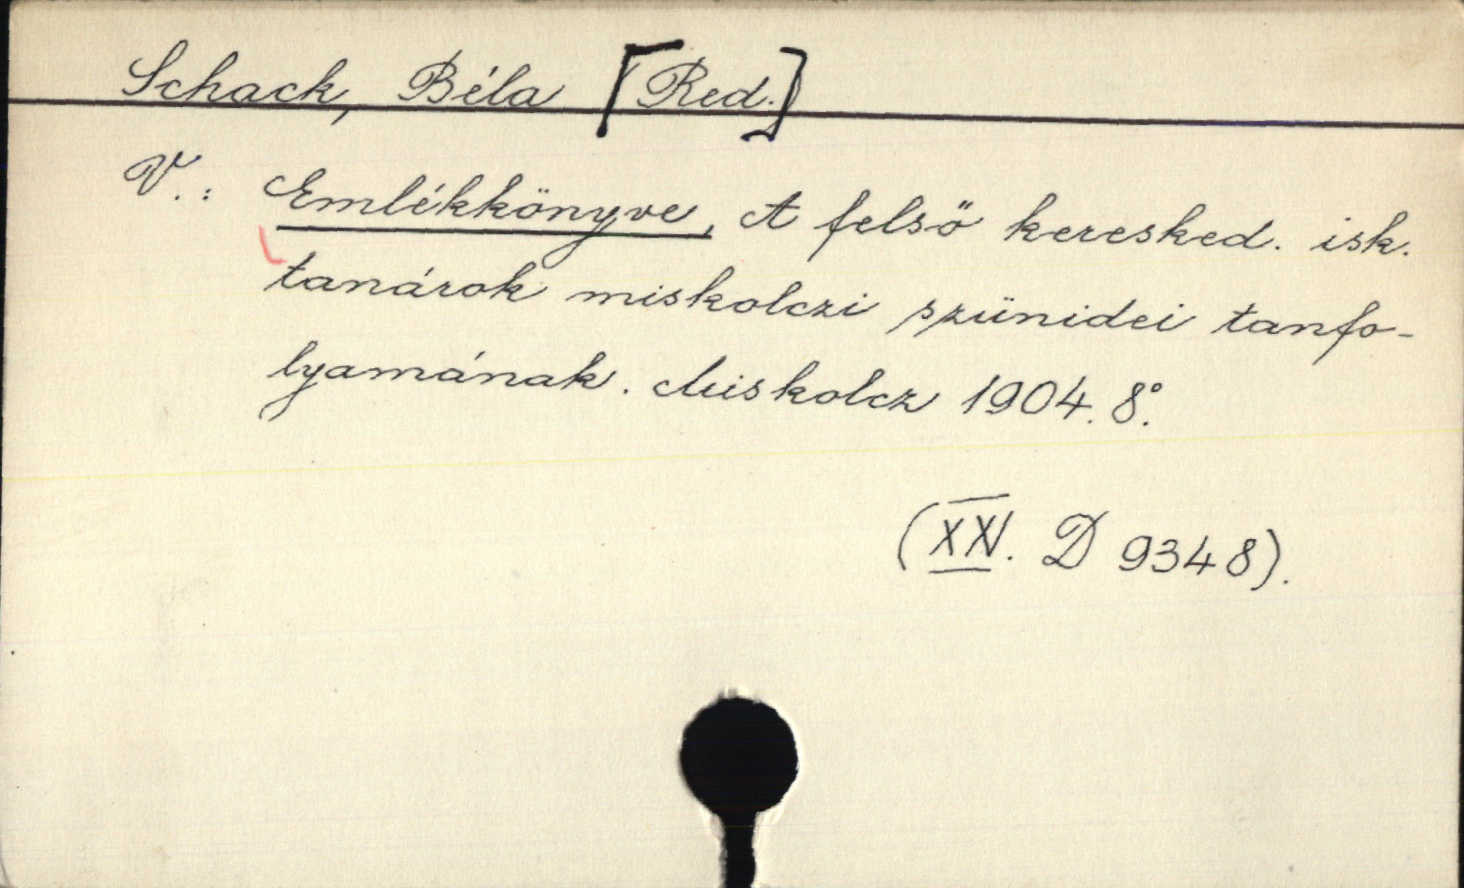 Schack, Béla [Red.]
V.: Emlékkönyve, A felső keresked. isk.
tanárok miskolczi szünidei tanfo-
lyamának. Miskolcz 1904. 8°.
(XXV. D 9348).